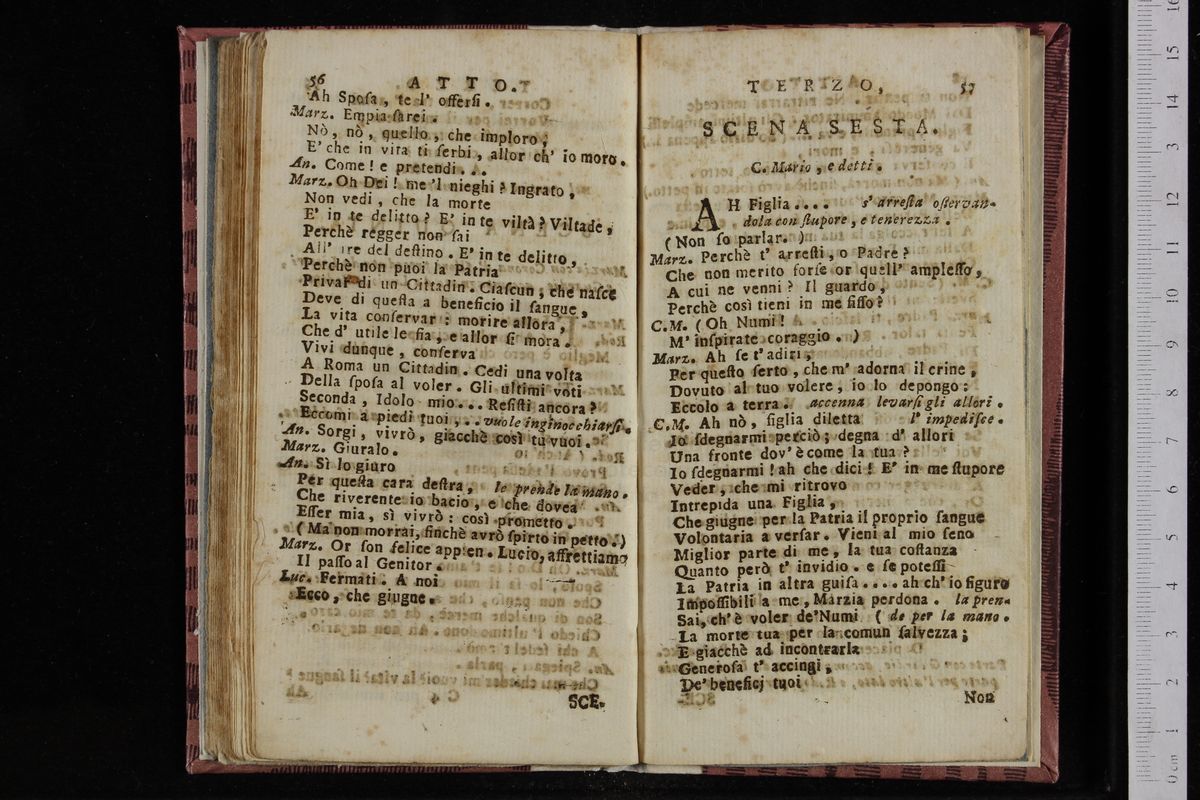 56 ATTO.
Ah Spoſa, te l' offerſi.
Marz. Empia ſarei.
Nò, nò, quello, che imploro;
E' che in vita ti ſerbi, allor ch' io moro.
An. Come! e pretendi...
Marz. Oh Dei! me 'l nieghi? Ingrato,
Non vedi, che la morte
E' in te delitto? E' in te viltà? Viltade,
Perchè regger non ſai
All' ire del deſtino. E' in te delitto,
Perchè non puoi la Patria
Privar di un Cittadin. Ciaſcun, che naſce
Deve di queſta a beneficio il ſangue,
La vita conſervar: morire allora,
Che d' utile le ſia, e allor ſi mora.
Vivi dunque, conſerva
A Roma un Cittadin. Cedi una volta
Della ſpoſa al voler. Gli ultimi voti
Seconda, Idolo mio... Reſiſti ancora?
Eccomi a piedi tuoi,.. vuole inginocchiarſi.
An. Sorgi, vivrò, giacchè così tu vuoi.
Marz. Giuralo.
An. Sì lo giuro
Per queſta cara deſtra, le prende la mano.
Che riverente io bacio, e che dovea
Eſſer mia, sì vivrò: così prometto.
(Ma non morrai, finchè avrò ſpirto in petto.)
Marz. Or ſon felice appien. Lucio, affrettiamo
Il paſſo al Genitor.
Luc. Fermati. A noi
Ecco, che giugne.
SCE.
TERZO, 57
SCENA SESTA.
C. Mario, e detti.
AH Figlia.... s' arreſta oſſervan-
dola con ſtupore, e tenerezza.
(Non ſo parlar.)
Marz. Perchè t' arreſti, o Padre?
Che non merito forſe or quell' ampleſſo,
A cui ne venni? Il guardo,
Perchè così tieni in me fiſſo?
C.M. (Oh Numi!
M' inſpirate coraggio.)
Marz. Ah ſe t' adiri,
Per queſto ſerto, che m' adorna il crine,
Dovuto al tuo volere, io lo depongo:
Eccolo a terra. accenna levarſi gli allori.
C.M. Ah nò, figlia diletta l' impediſce.
Io ſdegnarmi perciò; degna d' allori
Una fronte dov' è come la tua?
Io ſdegnarmi! ah che dici! E' in me ſtupore
Veder, che mi ritrovo
Intrepida una Figlia,
Che giugne per la Patria il proprio ſangue
Volontaria a verſar. Vieni al mio ſeno
Miglior parte di me, la tua coſtanza
Quanto però t' invidio. e ſe poteſſi
La Patria in altra guiſa.... ah ch' io figuro
Impoſſibili a me, Marzia perdona. la pren-
Sai, ch' è voler de' Numi (de per la mano.
La morte tua per la comun ſalvezza;
E giacchè ad incontrarla
Generoſa t' accingi,
De' beneficj tuoi
Non